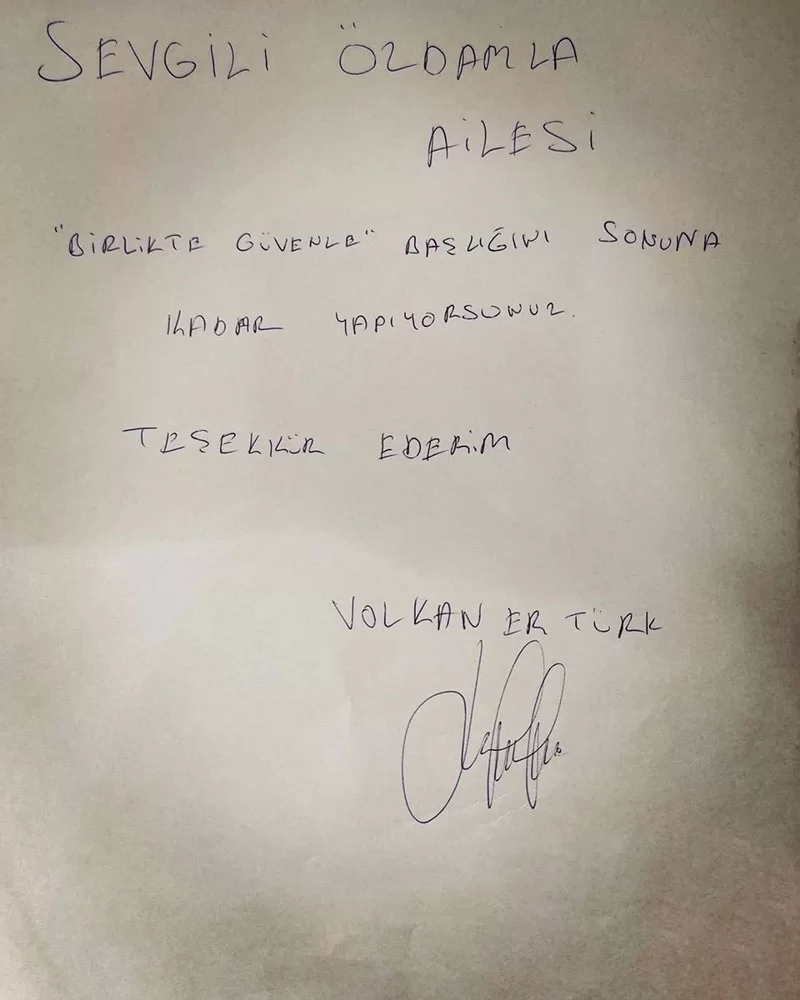 SEVGİLİ ÖZDAMLA
AİLESİ
"BİRLİKTE GÜVENLE" BAŞLIĞINI SONUNA
KADAR YAPIYORSUNUZ.
TEŞEKKÜR EDERİM
VOLKAN ER TÜRK